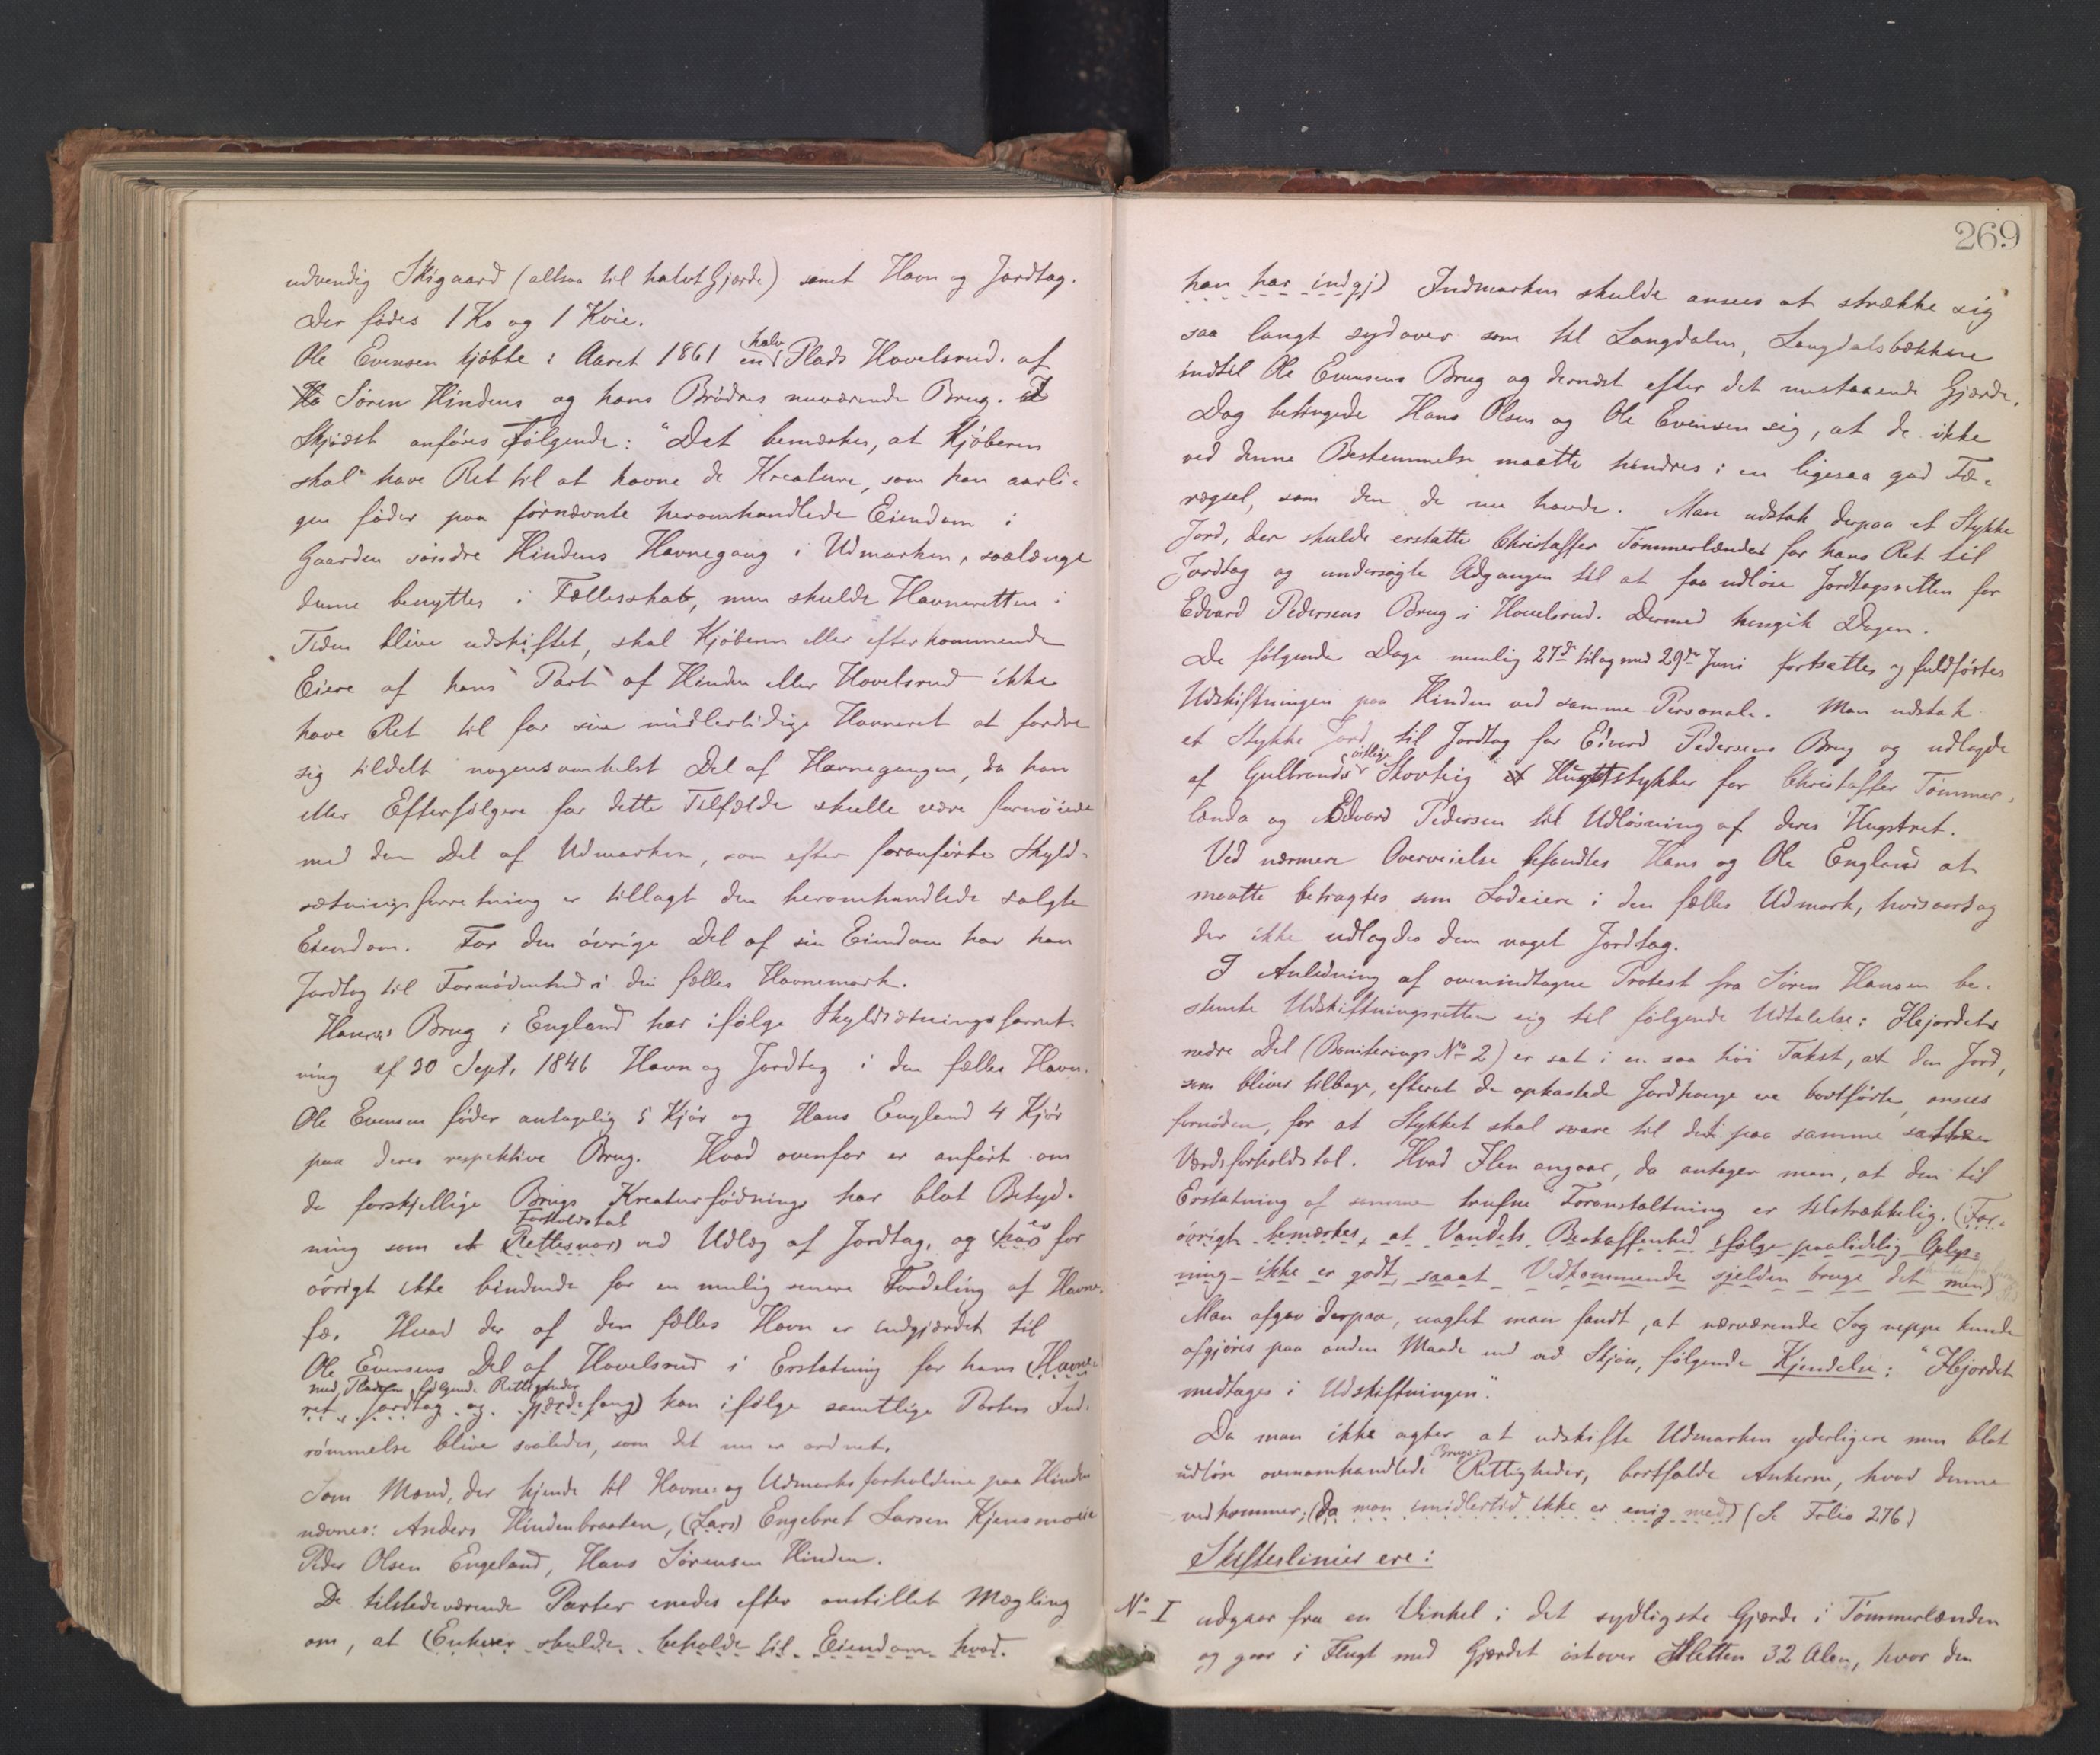 udvendig Skigaard (altsaa til halvt Gjærde) samt Havn og Jordtag.
Der födes 1 Ko og 1 Kvie.
Ole Evensen kjöbte i Aaret 1861 en halv Plads Hovelsrud af
Ha Sören Hindens og hans Brödres nuværende Brug. I
Skjödet anföres Fölgende: "Det bemærkes, at Kjöberen
skal have Ret til at havne de Kreature, som han aarli-
gen föder paa fornævnte heromhandlede Eiendom i
Gaarden söndre Hindens Havnegang i Udmarken, saalænge
denne benyttes i Fællesskab, men skulde Havneretten i
Tiden blive udskiftet, skal Kjöberen eller efterkommende
Eiere af hans Part af Hinden eller Hovelsrud ikke
have Ret til for sin midlertidige Havneret at fordre
sig tildelt nogensomhelst Del af Havnegangen, da han
eller Efterfölgere for dette Tilfælde skulle være fornöiede
med den Del af Udmarken, som efter foranförte Skyld-
sætningsforretning er tillagt den heromhandlede solgte
Eiendom. For den övrige Del af sin Eiendom har han
Jordtag til Fornödenhed i den fælles Havnemark.
Hanses Brug i England har ifölge Skyldsætningsforret-
ning af 30 Sept. 1846 Havn og Jordtag i den fælles Havn.
Ole Evensen föder antagelig 5 Kjör og Hans England 4 Kjör
paa deres respektive Brug. Hvad ovenfor er anfört om
de forskjellige Brugs Kreaturfödning har blot Betyd-
ning som et (Rettesnor) Forholdstal ved Udlæg af Jordtag, og (har) er for
övrigt ikke bindende for en mulig senere Fordeling af Havne-
fæ. Hvad der af den fælles Havn er indgjærdet til
Ole Evensens Del af Hovelsrud i Erstatning for hans (Havne-
med Pladsen fölgende Rettigheder
ret, Jordtag og Gjærdefang) kan ifölge samtlige Parters Ind-
römmelse blive saaledes, som det nu er ordnet.
Som Mænd, der kjende til Havne- og Udmarksforholdene paa Hinden
nævnes: Anders Hindenbraaten, (Lars) Engebret Larsen Kjensmoeie
Peder Olsen Engeland, Hans Sörensen Hinden.
De tilstedeværende Parter enedes efter anstillet Mægling
om, at (Enhver skulde beholde til Eiendom hvad
269
han har indgj) Indmarken skulde ansees at strække sig
saa langt sydover som til Langdalen, Langdalsbækken
indtil Ole Evensens Brug og dernæst efter det nustaaende Gjærde.
Dog betingede Hans Olsen og Ole Evensen sig, at de ikke
ved denne Bestemmelse maatte hindres i en ligesaa god Fæ-
rægsel, som den de nu havde. Man udstak derpaa et Stykke
Jord, der skulde erstatte Christoffer Tömmerlænden for hans Ret til
Jordtag og undersögte Adgangen til at faa udlöse Jordtagsretten for
Edvard Pedersens Brug i Hovelsrud. Dermed hengik Dagen.
De fölgende Dage nemlig 27de til og med 29de Juni fortsattes og fuldförtes
Udskiftningen paa Hinden ved samme Personale. Man udstak
et Stykke Jord til Jordtag for Edvard Pedersens Brug og udlagde
af Gulbrands östlige Skovteig et Hugststykker for Christoffer Tömmer-
lænda og Edvard Pedersen til Udlösning af deres Hugstret.
Ved nærmere Overveielse befandtes Hans og Ole England at
maatte betragtes som Lodeiere i den fælles Udmark, hvisaarsag
der ikke udlagdes dem noget Jordtag.
I Anledning af ovenindtagne Protest fra Sören Hansen be-
stemte Udskiftningsretten sig til fölgende Udtalelse: Hejordets
nedre Del (Boniterings No 2) er sat i en saa höi Takst, at den Jord,
som bliver tilbage, efterat de opkastede Jordhauge ere bortförte, ansees
fornöden, for at Stykket skal svare til det paa samme satte
Værdsforholdstal. Hvad Ilen angaar, da antager man, at den til
Erstatning af samme trufne Foranstaltning er tilstrækkelig. (For-
övrigt bemærkes, at Vandets Beskaffenhed ifölge paalidelig Oplys-
ning ikke er godt, saaat Vedkommende sjelden bruge det men)
Man afgav derpaa, uagtet man fandt, at nærværende Sag neppe kunde
afgjöres paa anden Maade end ved Skjön, fölgende Kjendelse: "Hejordet
medtages i Udskiftningen".
Da man ikke agter at udskifte Udmarken yderligere men blot
udlöse ovenomhandlede Brugs-Rettigheder, bortfalde Ankerne, hvad denne
vedkommer; (da man imidlertid ikke er enig med) (Se Folio 276)
Skiftelinier ere:
No I udgaar fra en Vinkel i det sydligste Gjærde i Tömmerlænden
og gaar i Flugt med Gjærdet östover Sletten 32 Alen, hvor den